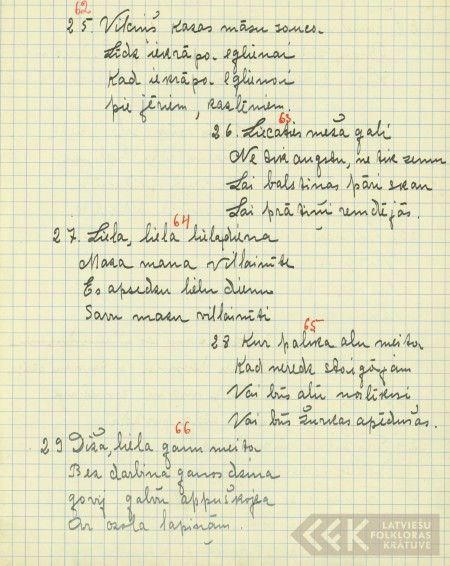 62
25. Vilciņš kazas māsu sauca
Līdz iekrāpa eglienai
Kad iekrāpa eglienai
pie jēriem, kazlēniem.
63
26. Liecaties meža gali
Ne tik augstu, ne tik zemu
Lai balstiņas pāri skan
Lai prātiņi remdējās.
64
27. Liela, liela lieladiena
Maza mana villainīte
Es apsedzu lielu dienu
Savu mazu villainīti
65
28 Kur palika alu meita
Kad neredz staigājam
Vai būs alū noslīkusi
Vai būs žurkas apēdušas.
66
29 Diža, liela ganu meita
Bez darbiņa ganos dzina
govij galvu appuškoja
Ar ozola lapiņām.
LATVIEŠU
FOLKLORAS
KRĀTUVE